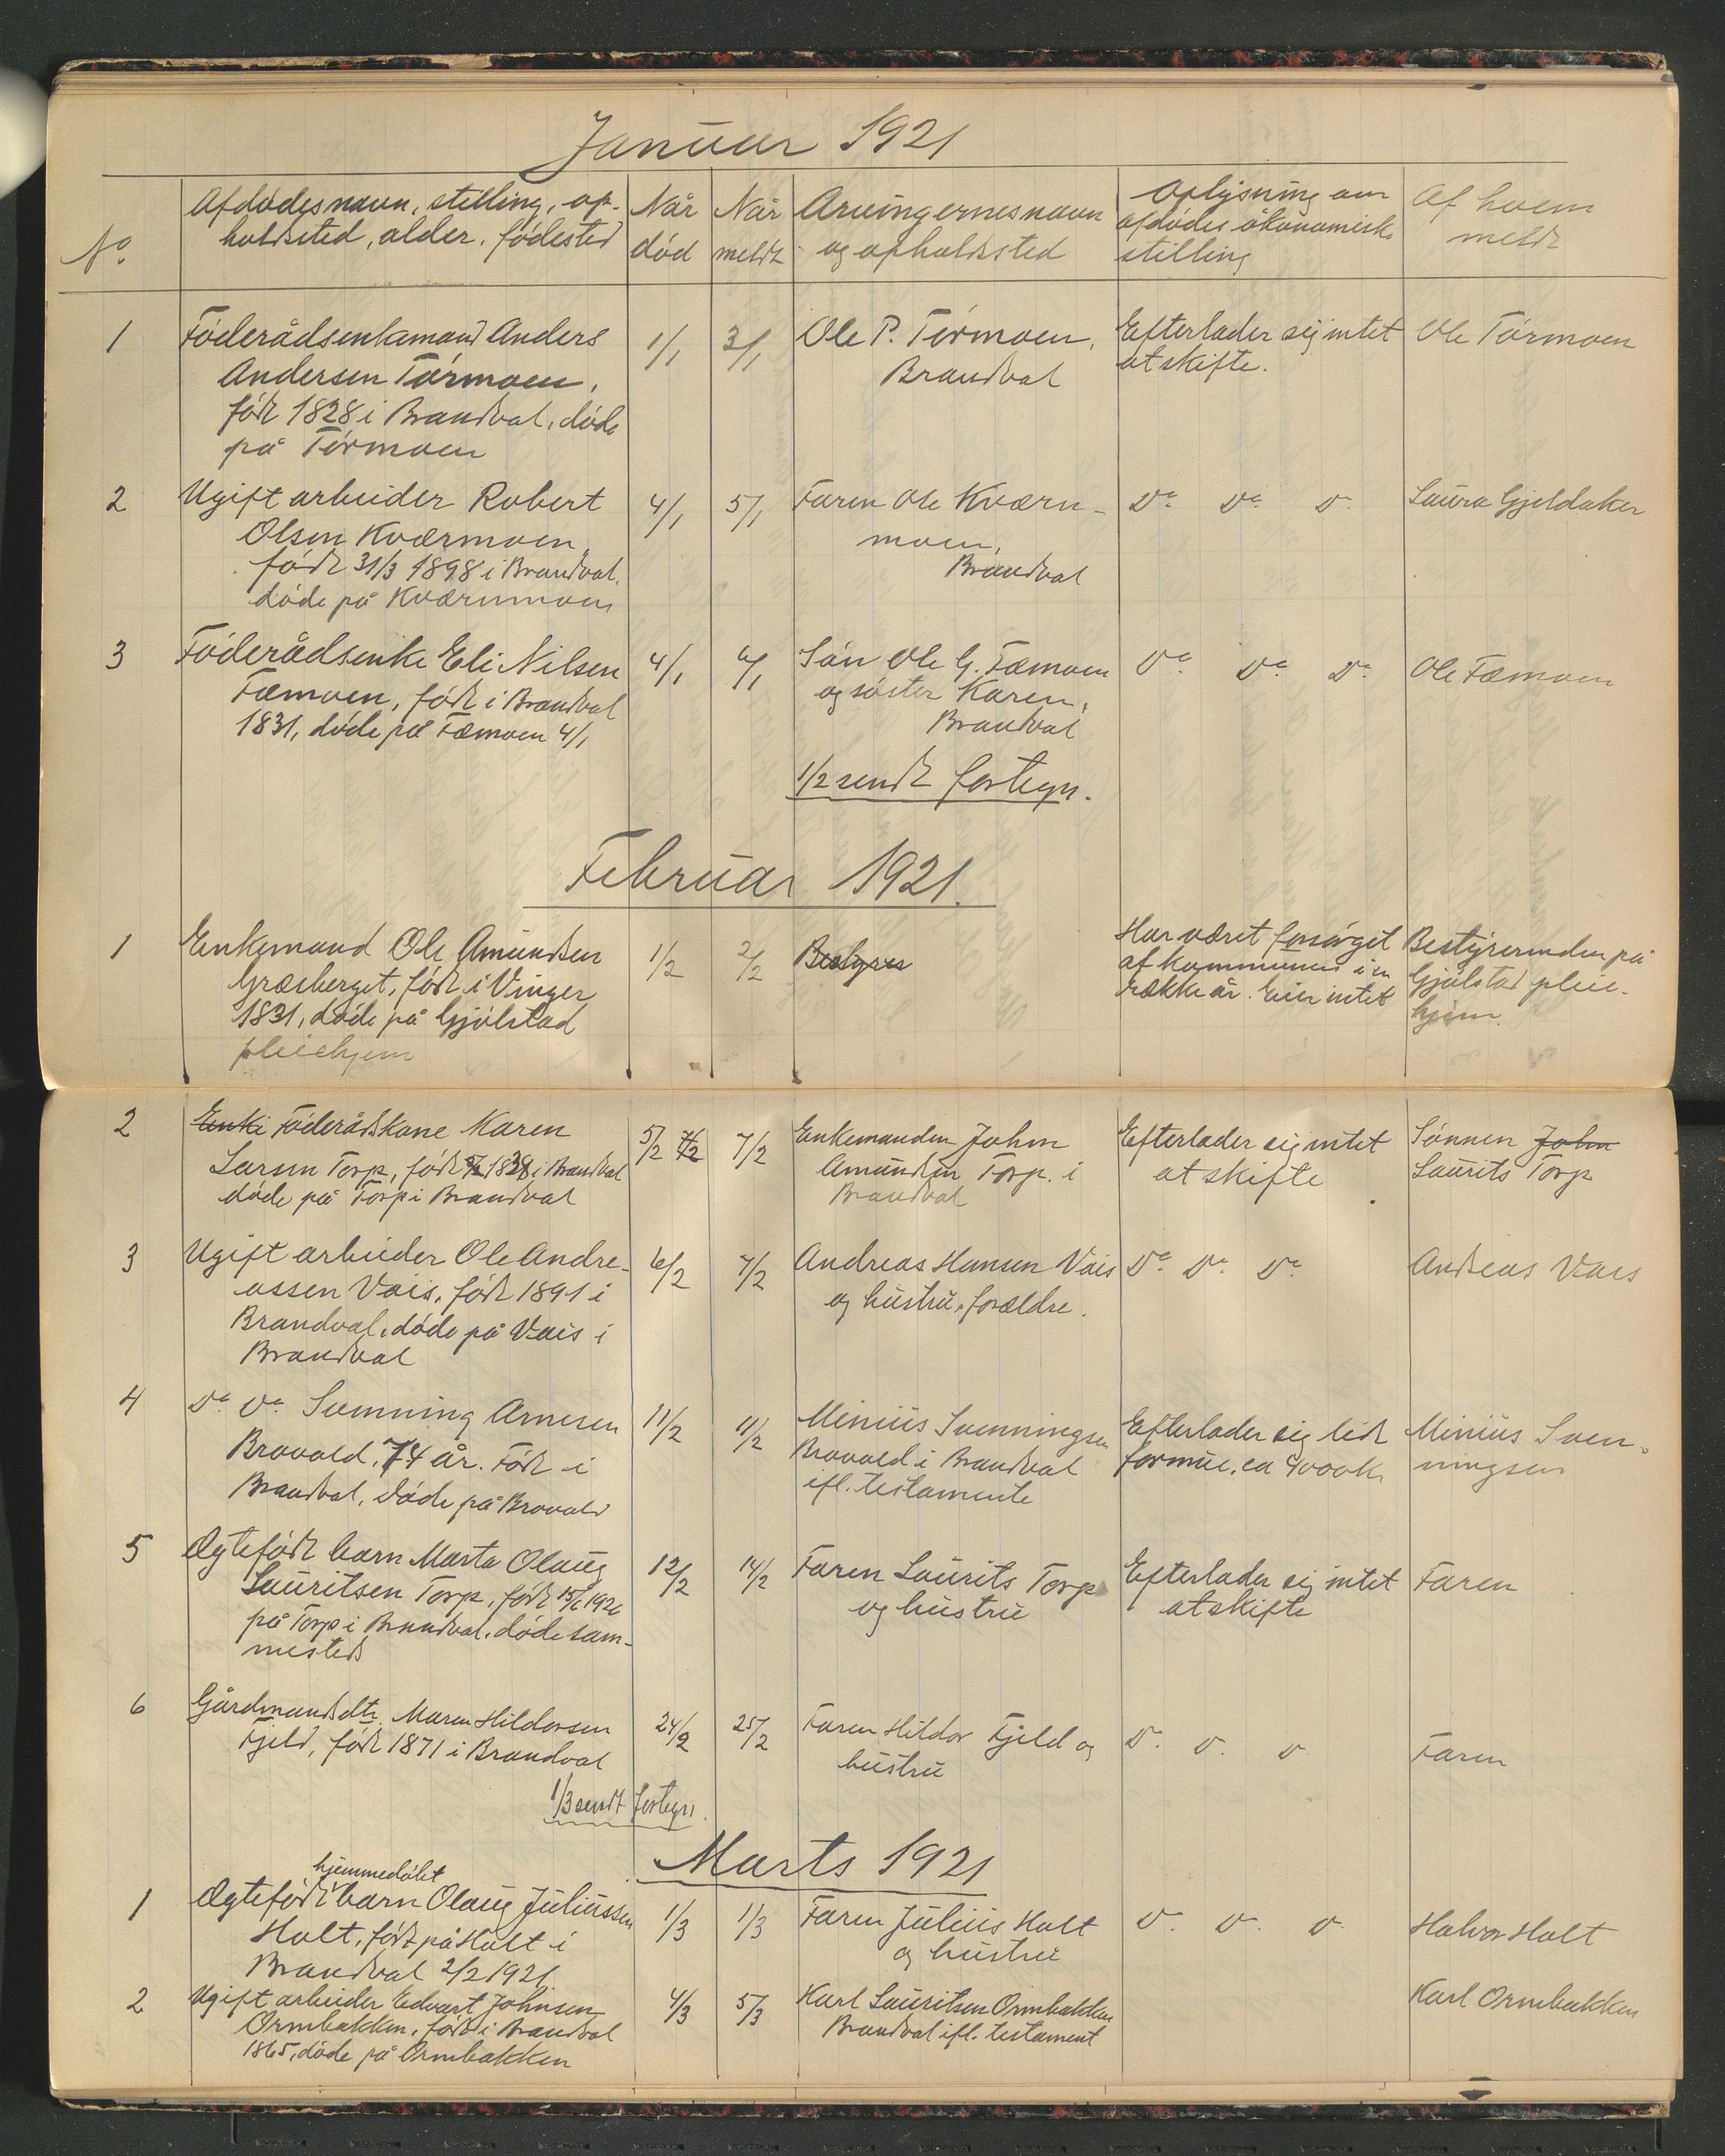 Januar 1921
No.
Afdødes navn, stilling, op-
holdsted, alder, fødested
Når
død
Når
meldt
Arvingernes navn
og opholdssted
Oplysning om
afdødes økonomiske
stilling
Af hvem
meldt
1
Föderådsenkemand Anders
Andersen Törmoen,
født 1828 i Brandval, døde
på Törmoen
1/1
3/1
Ole P. Törmoen,
Brandval
Efterlader sig intet
at skifte.
Ole Törmoen
2
Ugift arbeider Robert
Olsen Kværmoen,
født 31/3 1898 i Brandval,
døde på Kværnmoen
4/1
5/1
Faren Ole Kværn-
moen,
Brandval
Do Do D.
Laura Gjeldaker
3
Föderådsenke Eli Nilsen
Fæmoen, født i Brandval
1831, døde på Fæmoen 4/1
4/1
6/1
Søn Ole G. Fæmoen
og søster Karen,
Brandval
Do Do Do
Ole Fæmoen
1/2 sendt fortegn.
Februar 1921.
1
Enkemand Ole Amundsen
Græsberget, født i Vinger
1831, døde på Gjølstad
pleiehjem
1/2
2/2
Bestyres
Har været forsørget
af kommunen i en
række år. Eier intet
Bestyrerinden på
Gjølstad pleie-
hjem.
2
Enke Föderådskone Karen
Larsen Torp, født 1838 i Brandval
døde på Torp i Brandval
5/2 7/2
7/2
Enkemanden John
Amundsen Torp i
Brandval
Efterlader sig intet
at skifte
Sønnen John
Laurits Torp
3
Ugift arbeider Ole Andre-
assen Vais, født 1891 i
Brandval, døde på Vais i
Brandval
6/2
7/2
Andreas Hansen Vais
og hustru, forældre.
Do Do Do
Andreas Vais
4
Do Do Svenning Arnesen
Brovold, 74 år. Født i
Brandval, døde på Brovold
11/2
11/2
Minius Svenningsen
Brovold i Brandval
ifl. testamente
Efterlader sig lidt
formue, ca 4000 kr
Minius Sven-
ningsen
5
Ægtefødt barn Marta Olaug
Lauritsen Torp, født 15/6 1920
på Torp i Brandval, døde sam-
mesteds
12/2
14/2
Faren Laurits Torp
og hustru
Efterlader sig intet
at skifte
Faren
6
Gårdmandsdtr. Maren Hildorsen
Fjeld, født 1871 i Brandval
24/2
25/2
Faren Hildor Fjeld og
hustru
D. D. D
Faren
1/3 sendt fortegn.
Marts 1921
1
hjemmedøbt
Ægtefødt barn Olaug Juliussen
Holt, født på Holt i
Brandval 2/2 1921
1/3
1/3
Faren Julius Holt
og hustru
D. D. D.
Halvor Holt
2
Ugift arbeider Edvart Johnsen
Ormbakken, født i Brandval
1865, døde på Ormbakken
4/3
5/3
Karl Lauritsen Ormbakken
Brandval ifl. testament
Karl Ormbakken